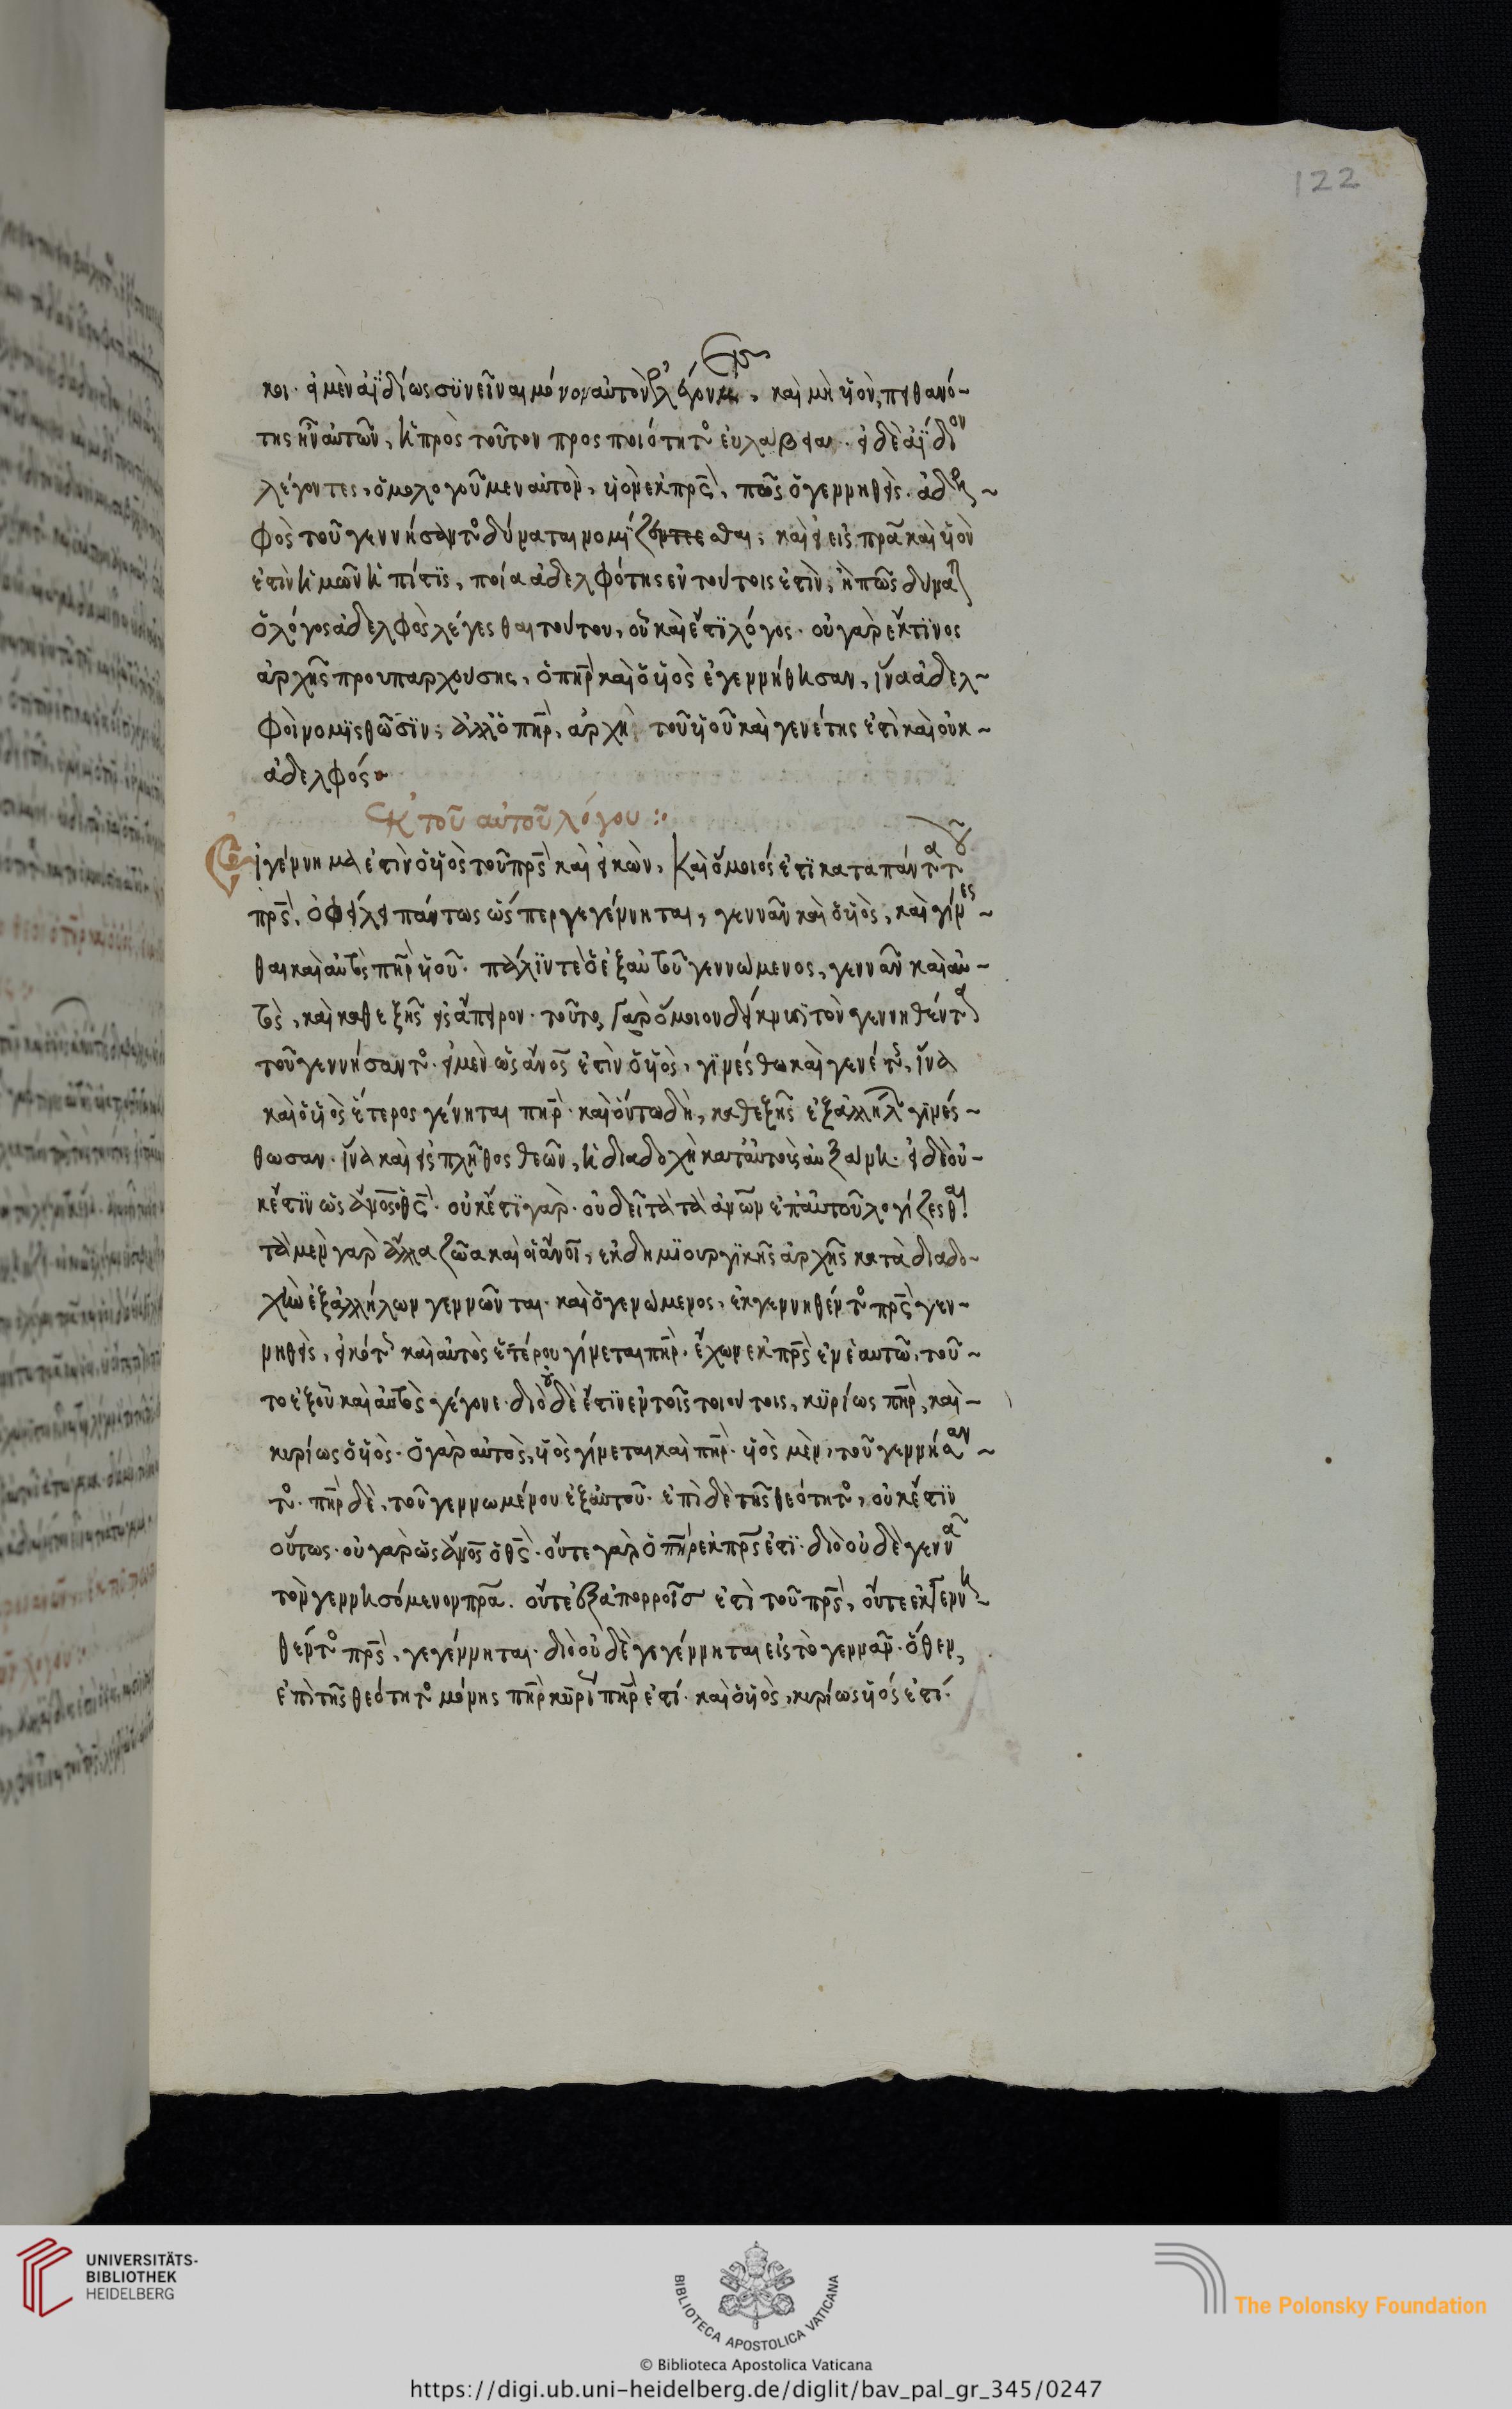 122
κοι· εἰ μὲν ἀϊδίως συνεῖναι μόνον αὐτὸν ἔλεγον, καὶ μὴ υἱόν, πιθανό-
της ἦν αὐτῶν, ἡ πρὸς τοῦτον προσποιότητος εὐλάβεια· εἰ δὲ ἀΐδιον
λέγοντες, ὁμολογοῦμεν αὐτὸν, υἱὸν ἐκ πρς, πῶς ὁ γεννηθεὶς ἀδελ~
φὸς τοῦ γεννήσαντος δύναται νομίζεσθαι; καὶ εἰ εἰς πρα καὶ υἱὸν
ἐστὶν ἡμῶν ἡ πίστις, ποία ἀδελφότης ἐν τούτοις ἐστὶν; ἢ πῶς δύναται
ὁ λόγος ἀδελφὸς λέγεσθαι τούτου, οὗ καὶ ἔστι λόγος· οὐ γὰρ ἔκ τινος
ἀρχῆς προυπαρχούσης, ὁ πηρ καὶ ὁ υἱὸς ἐγεννήθησαν, ἵνα ἀδελ~
φοὶ νομισθῶσιν; ἀλλ' ὁ πηρ, ἀρχὴ τοῦ υἱοῦ καὶ γενέτης ἐστὶ καὶ οὐκ~
ἀδελφός·
Ἐκ τοῦ αὐτοῦ λόγου :·
Εἰ γέννημα ἐστὶν ὁ υἱὸς τοῦ πρς καὶ εἰκὼν, καὶ ὅμοιός ἐστι κατὰ πάντα τοῦ
πρς, ὀφείλει πάντως ὥσπερ γεγέννηται, γεννᾶν καὶ ὁ υἱὸς, καὶ γίνες~
θαι καὶ αὐτὸς πηρ υἱοῦ· πάλιν τε ὁ ἐξ αὐτοῦ γεννώμενος, γεννᾶν καὶ αὐ-
τὸς, καὶ καθεξῆς εἰς ἄπειρον· τοῦτο γὰρ ὅμοιον δείκνυσι τὸν γεννηθέντα
τοῦ γεννήσαντος· εἰ μὲν ὡς ἄνος ἐστὶν ὁ υἱὸς, γινέσθω καὶ γενέτης, ἵνα
καὶ ὁ υἱὸς ἕτερος γένηται πηρ· καὶ οὕτω δὴ, καθεξῆς ἐξ ἀλλήλων γινές~
θωσαν· ἵνα καὶ εἰς πλῆθος θεῶν, ἡ διαδοχὴ κατ' αὐτοὺς αὐξάνῃ· εἰ δὲ οὐ-
κ ἔστιν ὡς ἄνος ὁ θς· οὐκ ἔστι γὰρ· οὐ δεῖ τὰ τῶν ἀνων ἐπ' αὐτοῦ λογίζεσθαι
τὰ μεν γὰρ ἄλλα ζῶα καὶ οἱ ἄνοι, ἐκ δημιουργικῆς ἀρχῆς κατὰ διαδο-
χὴν ἐξ ἀλλήλων γεννῶνται· καὶ ὁ γενώμενος, ἐκ γεννηθέντος πρς γεν-
νηθεὶς, εἰκότως καὶ αὐτὸς ἑτέρου γίνεται πηρ· ἔχων ἐκ πρς ἐν ἑαυτῶ, τοῦ~
το ἐξ οὗ καὶ αὐτὸς γέγονε· διὸ οὐδὲ ἔστιν ἐν τοῖς τοιούτοις, κυρίως πηρ, καὶ-
κυρίως ὁ υἱὸς· ὁ γὰρ αὐτὸς, υἱὸς γίνεται καὶ πηρ· υἱὸς μὲν, τοῦ γεννήσαν~
τος· πηρ δὲ, τοῦ γεννωμένου ἐξ αὐτοῦ· ἐπὶ δὲ τῆς θεότητος, οὐκ ἔστιν
οὕτως· οὐ γὰρ ὡς ἄνος ὁ θς· οὔτε γὰρ ὁ πηρ ἐκ πρς ἐστι· διὸ οὐδὲ γεννᾶ
τὸν γεννησόμενον πρα. οὔτε ἐξ ἀπορροίας ἐστὶ τοῦ πρς, οὔτε ἐκ γεννη~
θέντος πρς, γεγέννηται· διὸ οὐδὲ γεγέννηται εἰς τὸ γεννᾶν· ὅθεν,
ἐπὶ τῆς θεότητος μόνης πηρ κυρίως πηρ ἐστί· καὶ ὁ υἱὸς, κυρίως υἱός ἐστί·
UNIVERSITÄTS-
BIBLIOTHEK
HEIDELBERG
BIBLIOTECA APOSTOLICA VATICANA
The Polonsky Foundation
© Biblioteca Apostolica Vaticana
https://digi.ub.uni-heidelberg.de/diglit/bav_pal_gr_345/0247